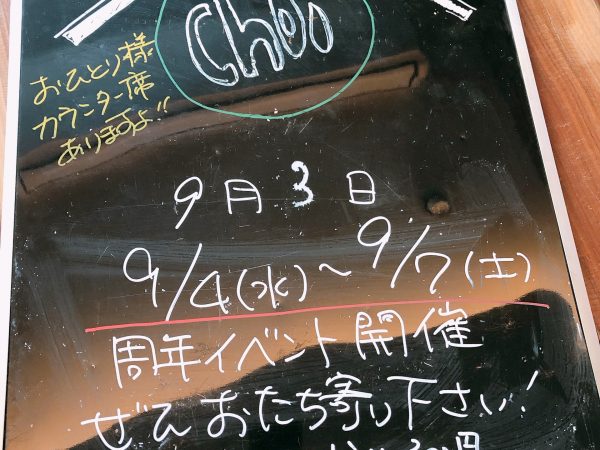 Choi
おひとり様
カウンター席
ありますよ!!
9月3日
9/4(水)~9/7(土)
周年イベント開催
ぜひおたち寄り下さい!